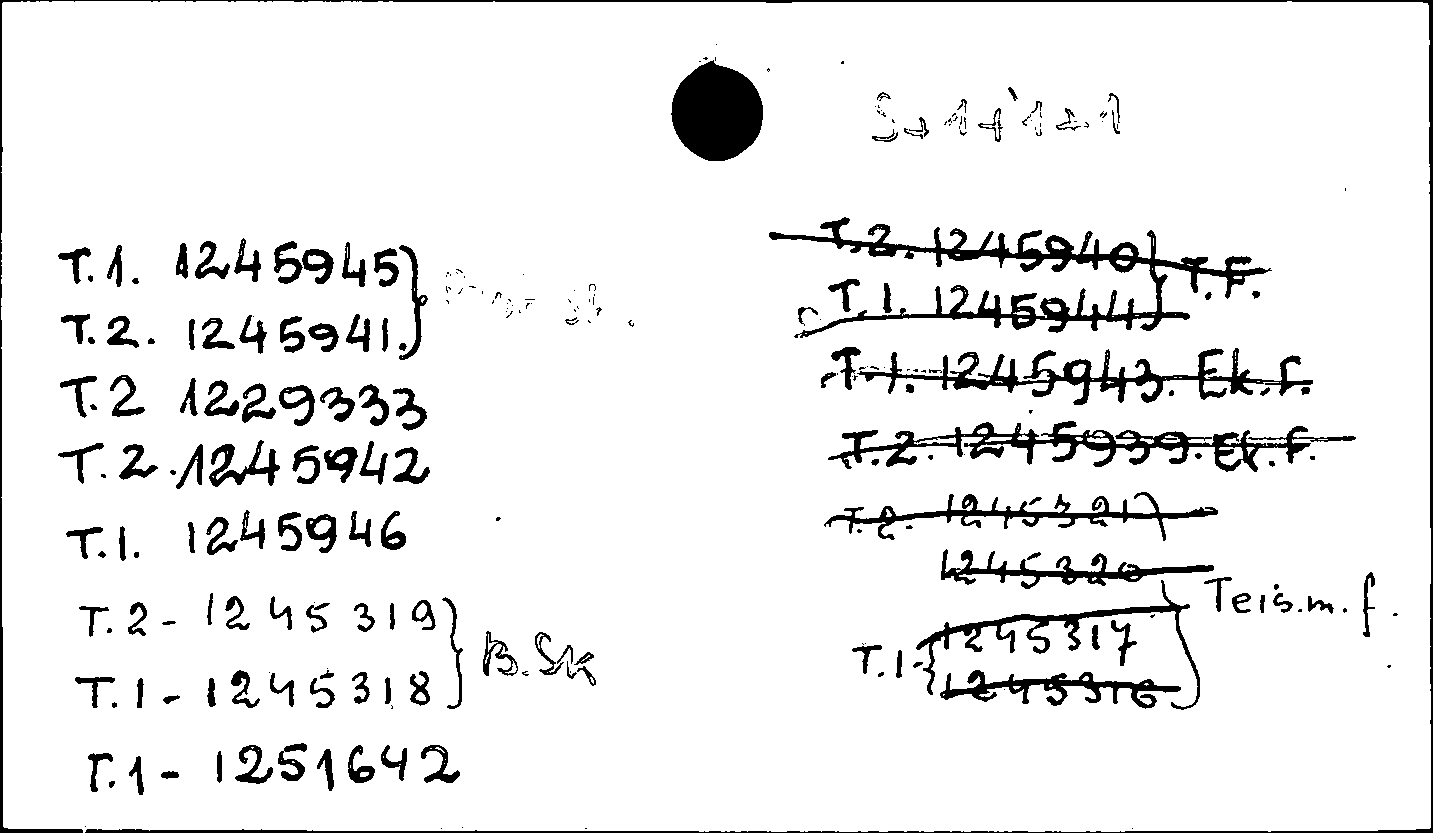 S+1+1+1
T.1. 1245945
T.2. 1245941.
T.2 1229333
T.2. 1245942
T.1. 1245946
T.2 - 1245319
T.1 - 1245318
B.Sk
T.1 - 1251642
T.2. 1245940
T.1. 1245944
T.F.
T.1. 1245943. Ek.f.
T.2. 1245939. Ek.f.
T.2. 1245321
1245320
T.1- 1245317
1245316
Teis.m.f.